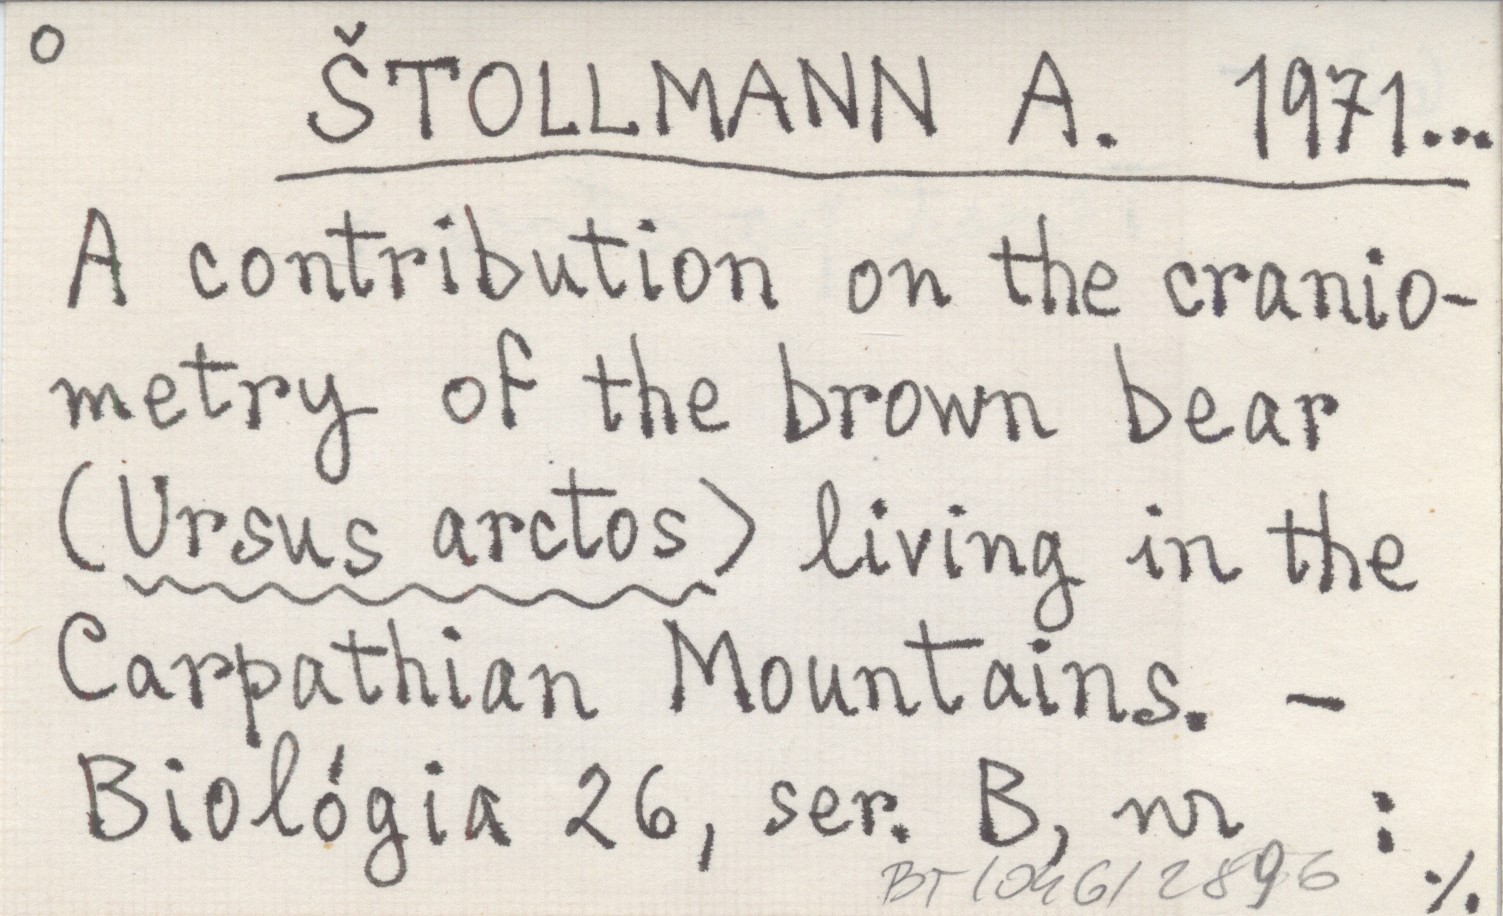 o
ŠTOLLMANN A. 1971...
A contribution on the cranio-
metry of the brown bear
(Ursus arctos) living in the
Carpathian Mountains. -
Biológia 26, ser. B, nr :
BT/046/2896
%